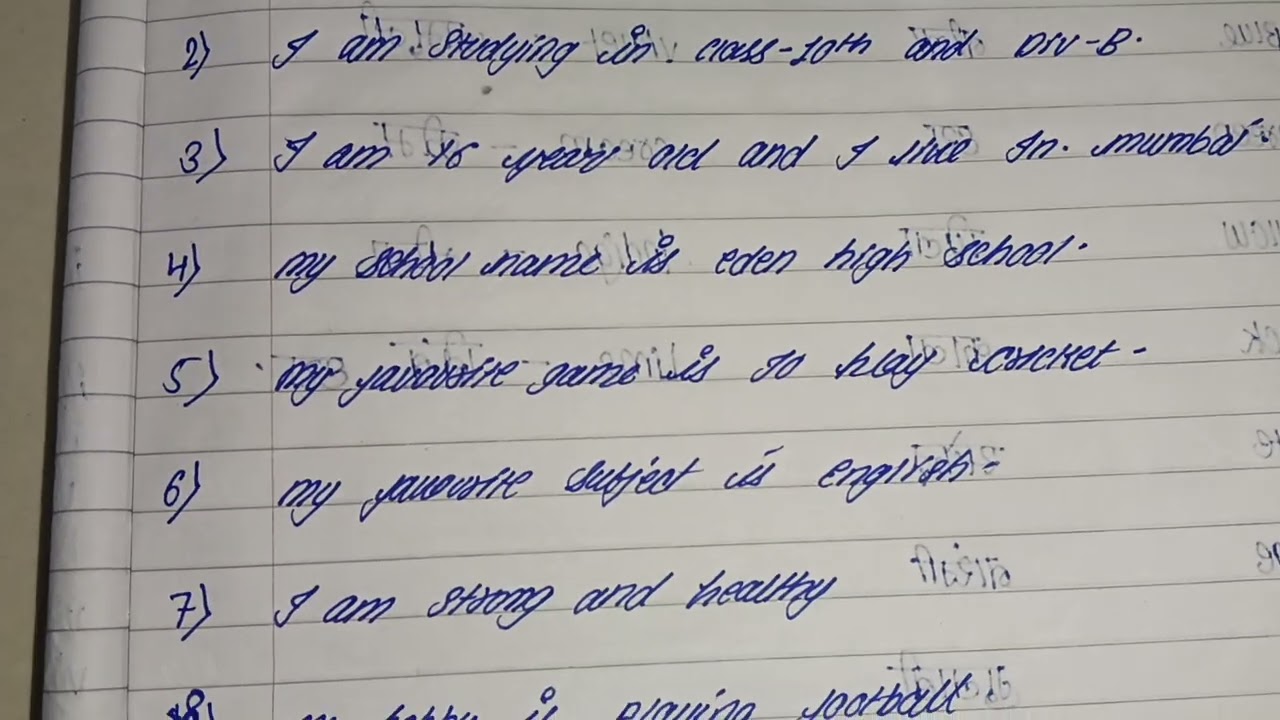 2) I am studying in class-10th and Div-B.
3) I am 16 years old and I live In. mumbai.
4) my school name is eden high school.
5) my favourite game is to play cricket -
6) my favourite subject is english -
7) I am strong and healthy
8) my hobby is playing football